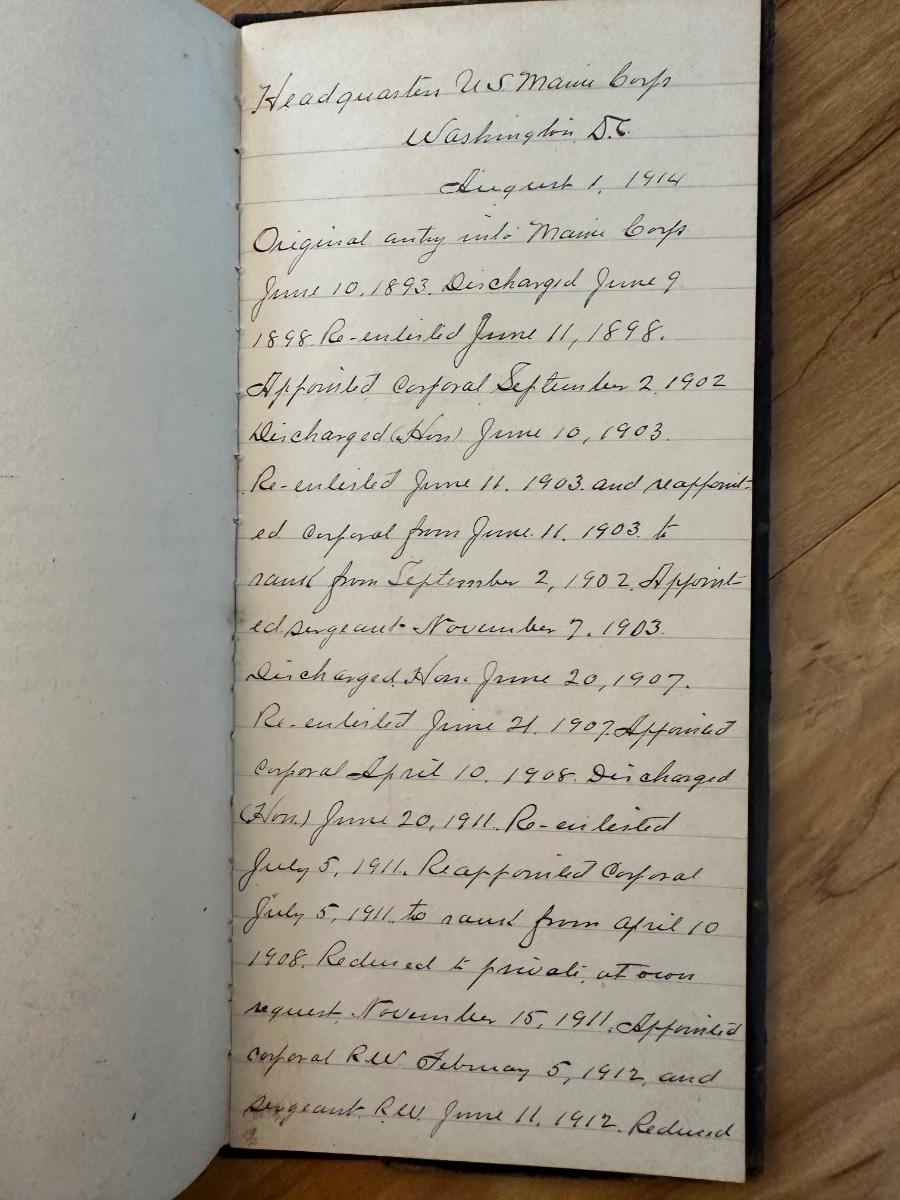 Headquarters U S Marine Corps
Washington, D.C.
August 1, 1914
Original entry into Marine Corps
June 10, 1893. Discharged June 9
1898. Re-enlisted June 11, 1898.
Appointed Corporal September 2, 1902
Discharged (Hon) June 10, 1903.
Re-enlisted June 11. 1903. and reappoint-
ed corporal from June. 11. 1903. to
rank from September 2, 1902. Appoint-
ed sergeant November 7. 1903.
Discharged. Hon. June 20, 1907.
Re-enlisted June 21. 1907. Appointed
corporal April 10, 1908. Discharged
(Hon.) June 20, 1911. Re-enlisted
July 5, 1911. Reappointed Corporal
July 5, 1911. to rank from April 10
1908. Reduced to private, at own
request. November 15, 1911. Appointed
corporal R.W. February 5, 1912, and
sergeant R.W. June 11, 1912. Reduced